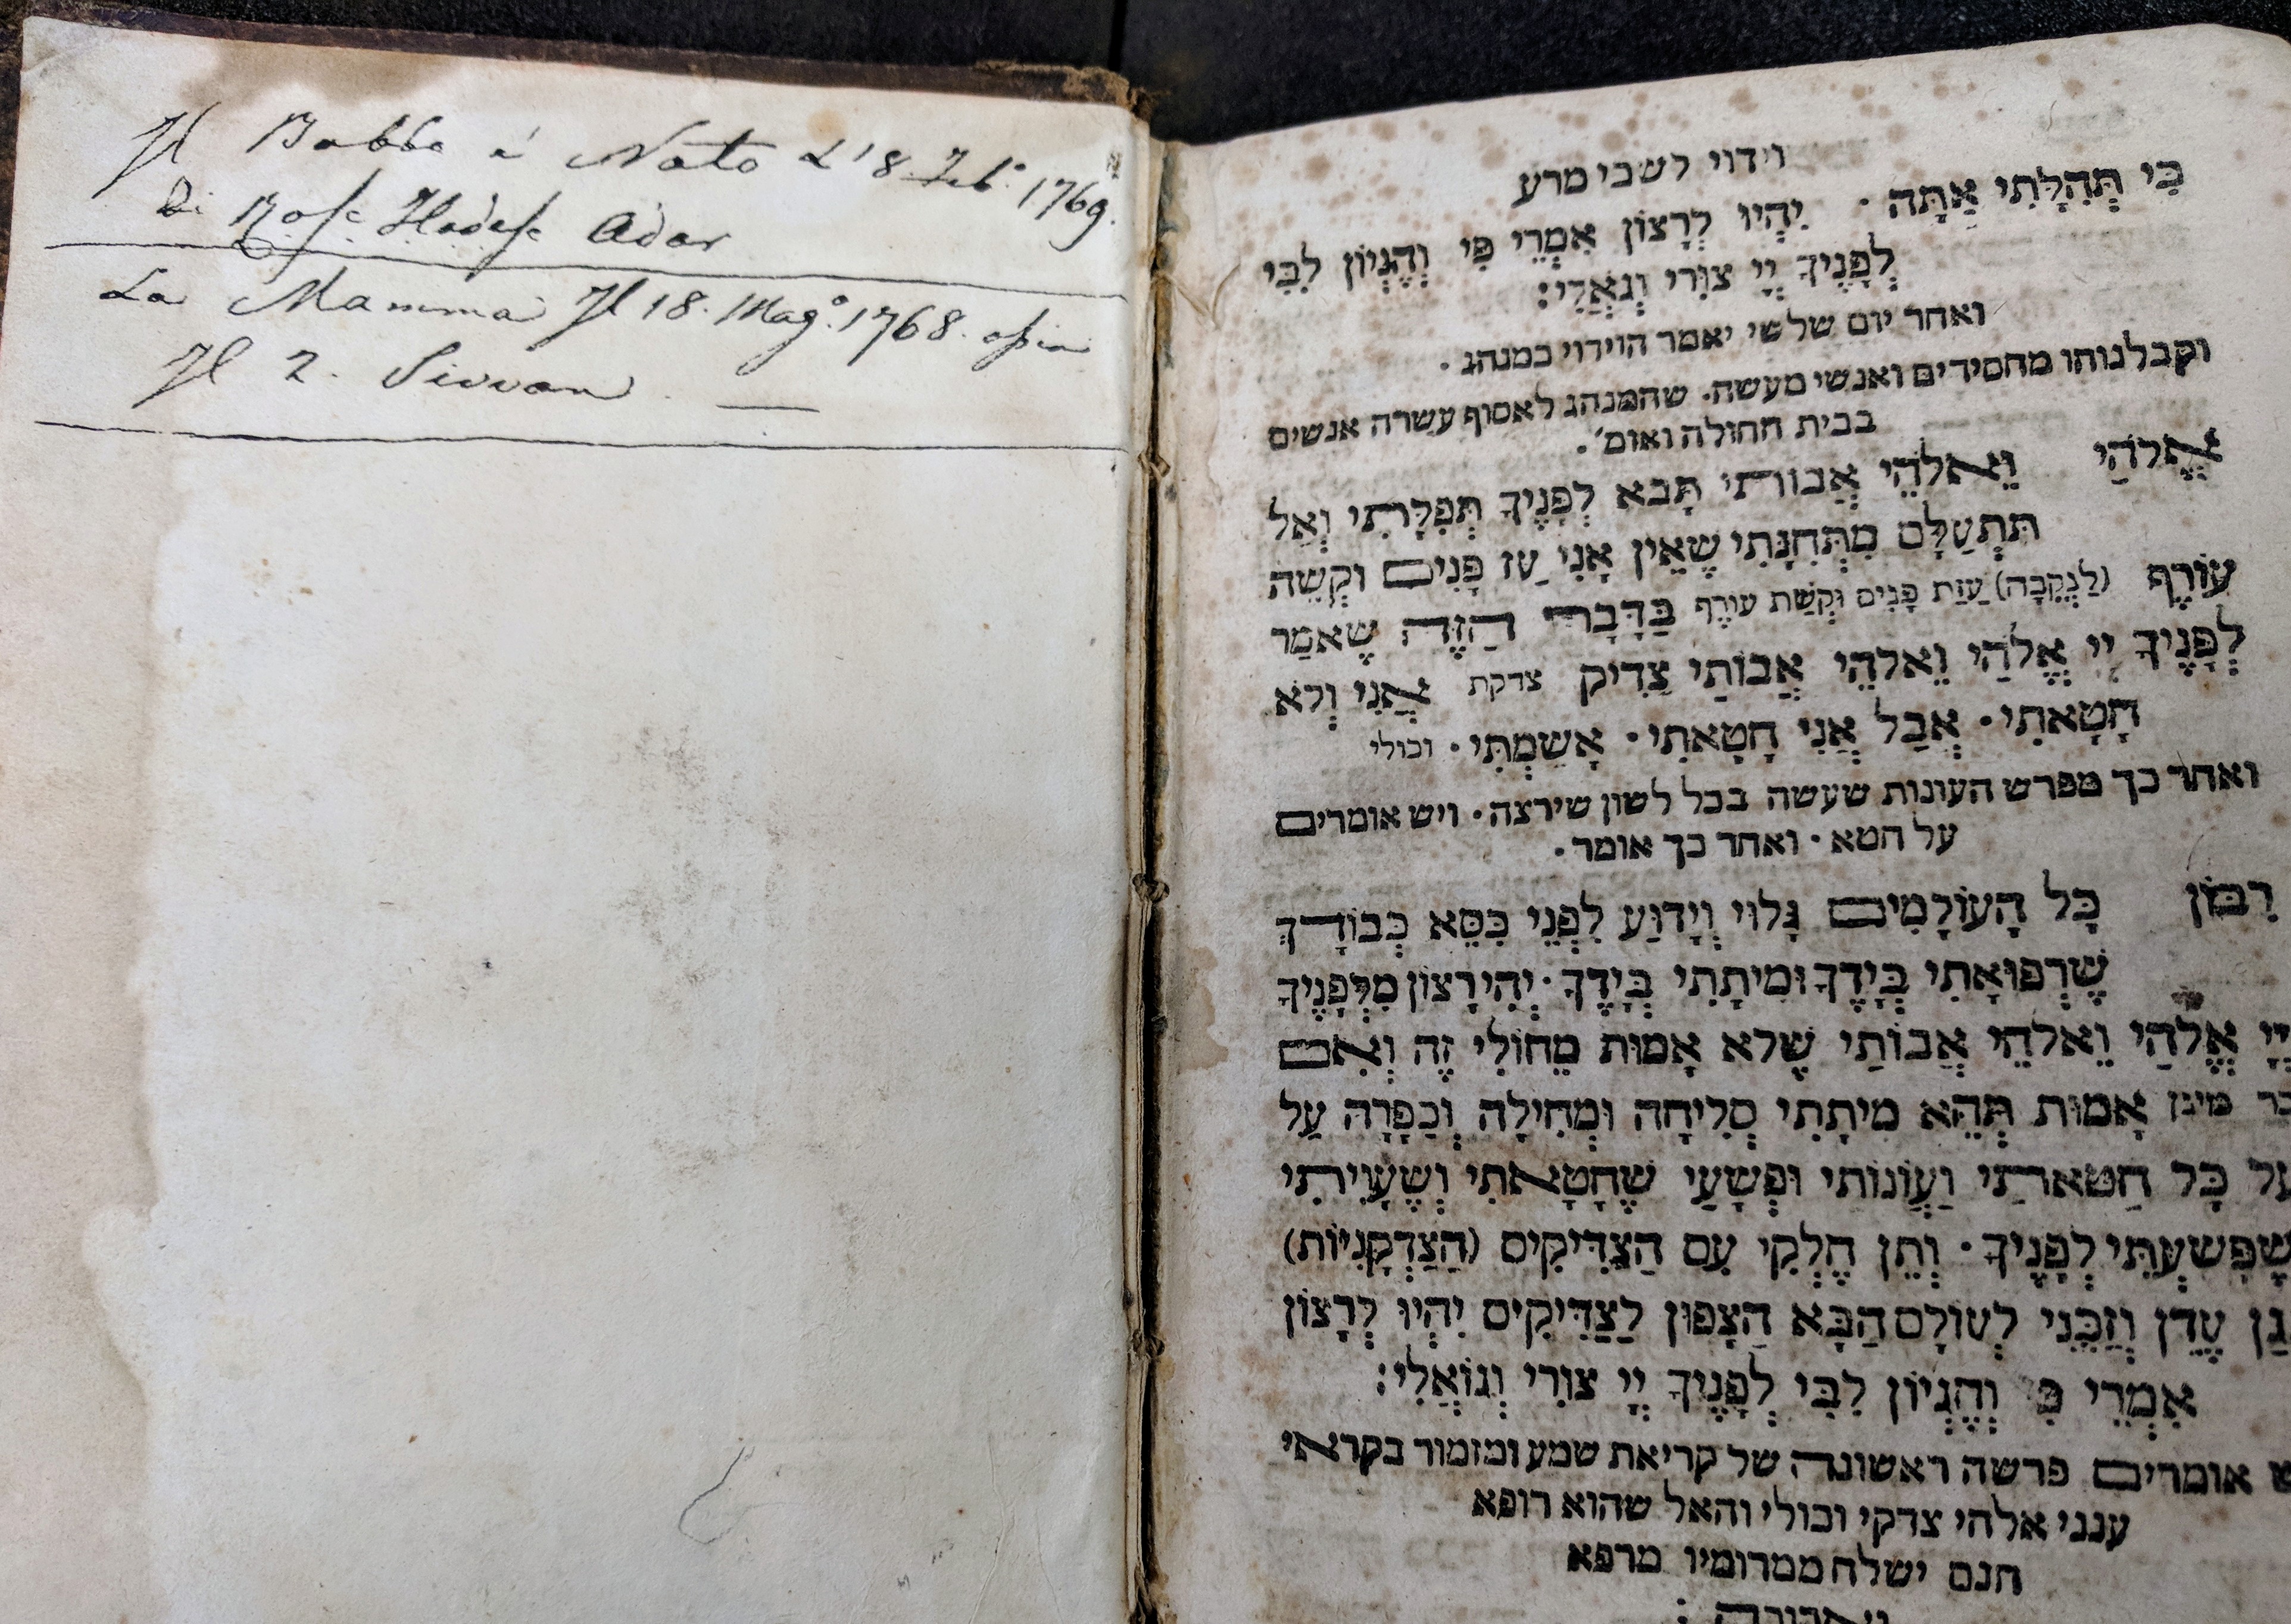 Il Babbo è Nato L' 8. Feb.° 1769.
Di Rosc Hodesc Adar
La Mamma Il 18. Mag.° 1768. ossia
Il 2. Sivvan. —
וידוי לשכי מרע
כִּי תְּהִלָּתִי אַתָּה · יִהְיוּ לְרָצוֹן אִמְרֵי פִּי וְהֶגְיוֹן לִבִּי
לְפָנֶיךָ יְיָ צוּרִי וְגֹאֲלִי:
ואחר יום שלשי יאמר הוידוי כמנהג ·
וקבלנוהו מחסידים ואנשי מעשה. שהמנהג לאסוף עשרה אנשים
בבית החולה ואומ' ·
אֱלֹהַי וֵאלֹהֵי אֲבוֹתַי תָּבֹא לְפָנֶיךָ תְּפִלָּתִי וְאַל
תִּתְעַלַּם מִתְּחִנָּתִי שֶׁאֵין אָנִי עַז פָּנִים וּקְשֵׁה
עוֹרֶף (לַנְּקֵבָה) עַזַּת פָּנִים וּקְשַׁת עורֶף בַּדָּבָר הַזֶּה שֶׁאֹמַר
לְפָנֶיךָ יְיָ אֱלֹהַי וֵאלֹהֵי אֲבוֹתַי צַדִּיק צדקת אֲנִי וְלֹא
חָטָאתִי · אֲבָל אֲנִי חָטָאתִי · אָשַׁמְתִּי · וכולי
ואחר כך מפרש העונות שעשה בכל לשון שירצה · ויש אומרים
על חטא · ואחר כך אומר ·
רִבּוֹן כָּל הָעוֹלָמִים גָּלוּי וְיָדוּעַ לִפְנֵי כִּסֵּא כְבוֹדֶךָ
שֶׁרְפוּאָתִי בְּיָדֶךָ וּמִיתָתִי בְּיָדֶךָ · יְהִי רָצוֹן מִלְּפָנֶיךָ
יְיָ אֱלֹהַי וֵאלֹהֵי אֲבוֹתַי שֶׁלֹּא אָמוּת מֵחוֹלִי זֶה וְאִם
אָמוּת תְּהֵא מִיתָתִי סְלִיחָה וּמְחִילָה וְכַפָּרָה עַל
כָּל חַטֹּאתַי וַעֲוֹנוֹתַי וּפְשָׁעַי שֶׁחָטָאתִי וְשֶׁעָוִיתִי
שֶׁפָּשַׁעְתִּי לְפָנֶיךָ · וְתֵן חֶלְקִי עִם הַצַּדִּיקִים (הַצַּדְקָנִיּוֹת)
גַן עֵדֶן וְזַכֵּנִי לְעוֹלָם הַבָּא הַצָּפוּן לַצַּדִּיקִים יִהְיוּ לְרָצוֹן
אִמְרֵי פִּי וְהֶגְיוֹן לִבִּי לְפָנֶיךָ יְיָ צוּרִי וְגוֹאֲלִי:
אומרים פרשה ראשונה של קריאת שמע ומזמור בקראי
ענני אלהי צדקי וכולי והאל שהוא רופא
חנם ישלח ממרומיו מרפא